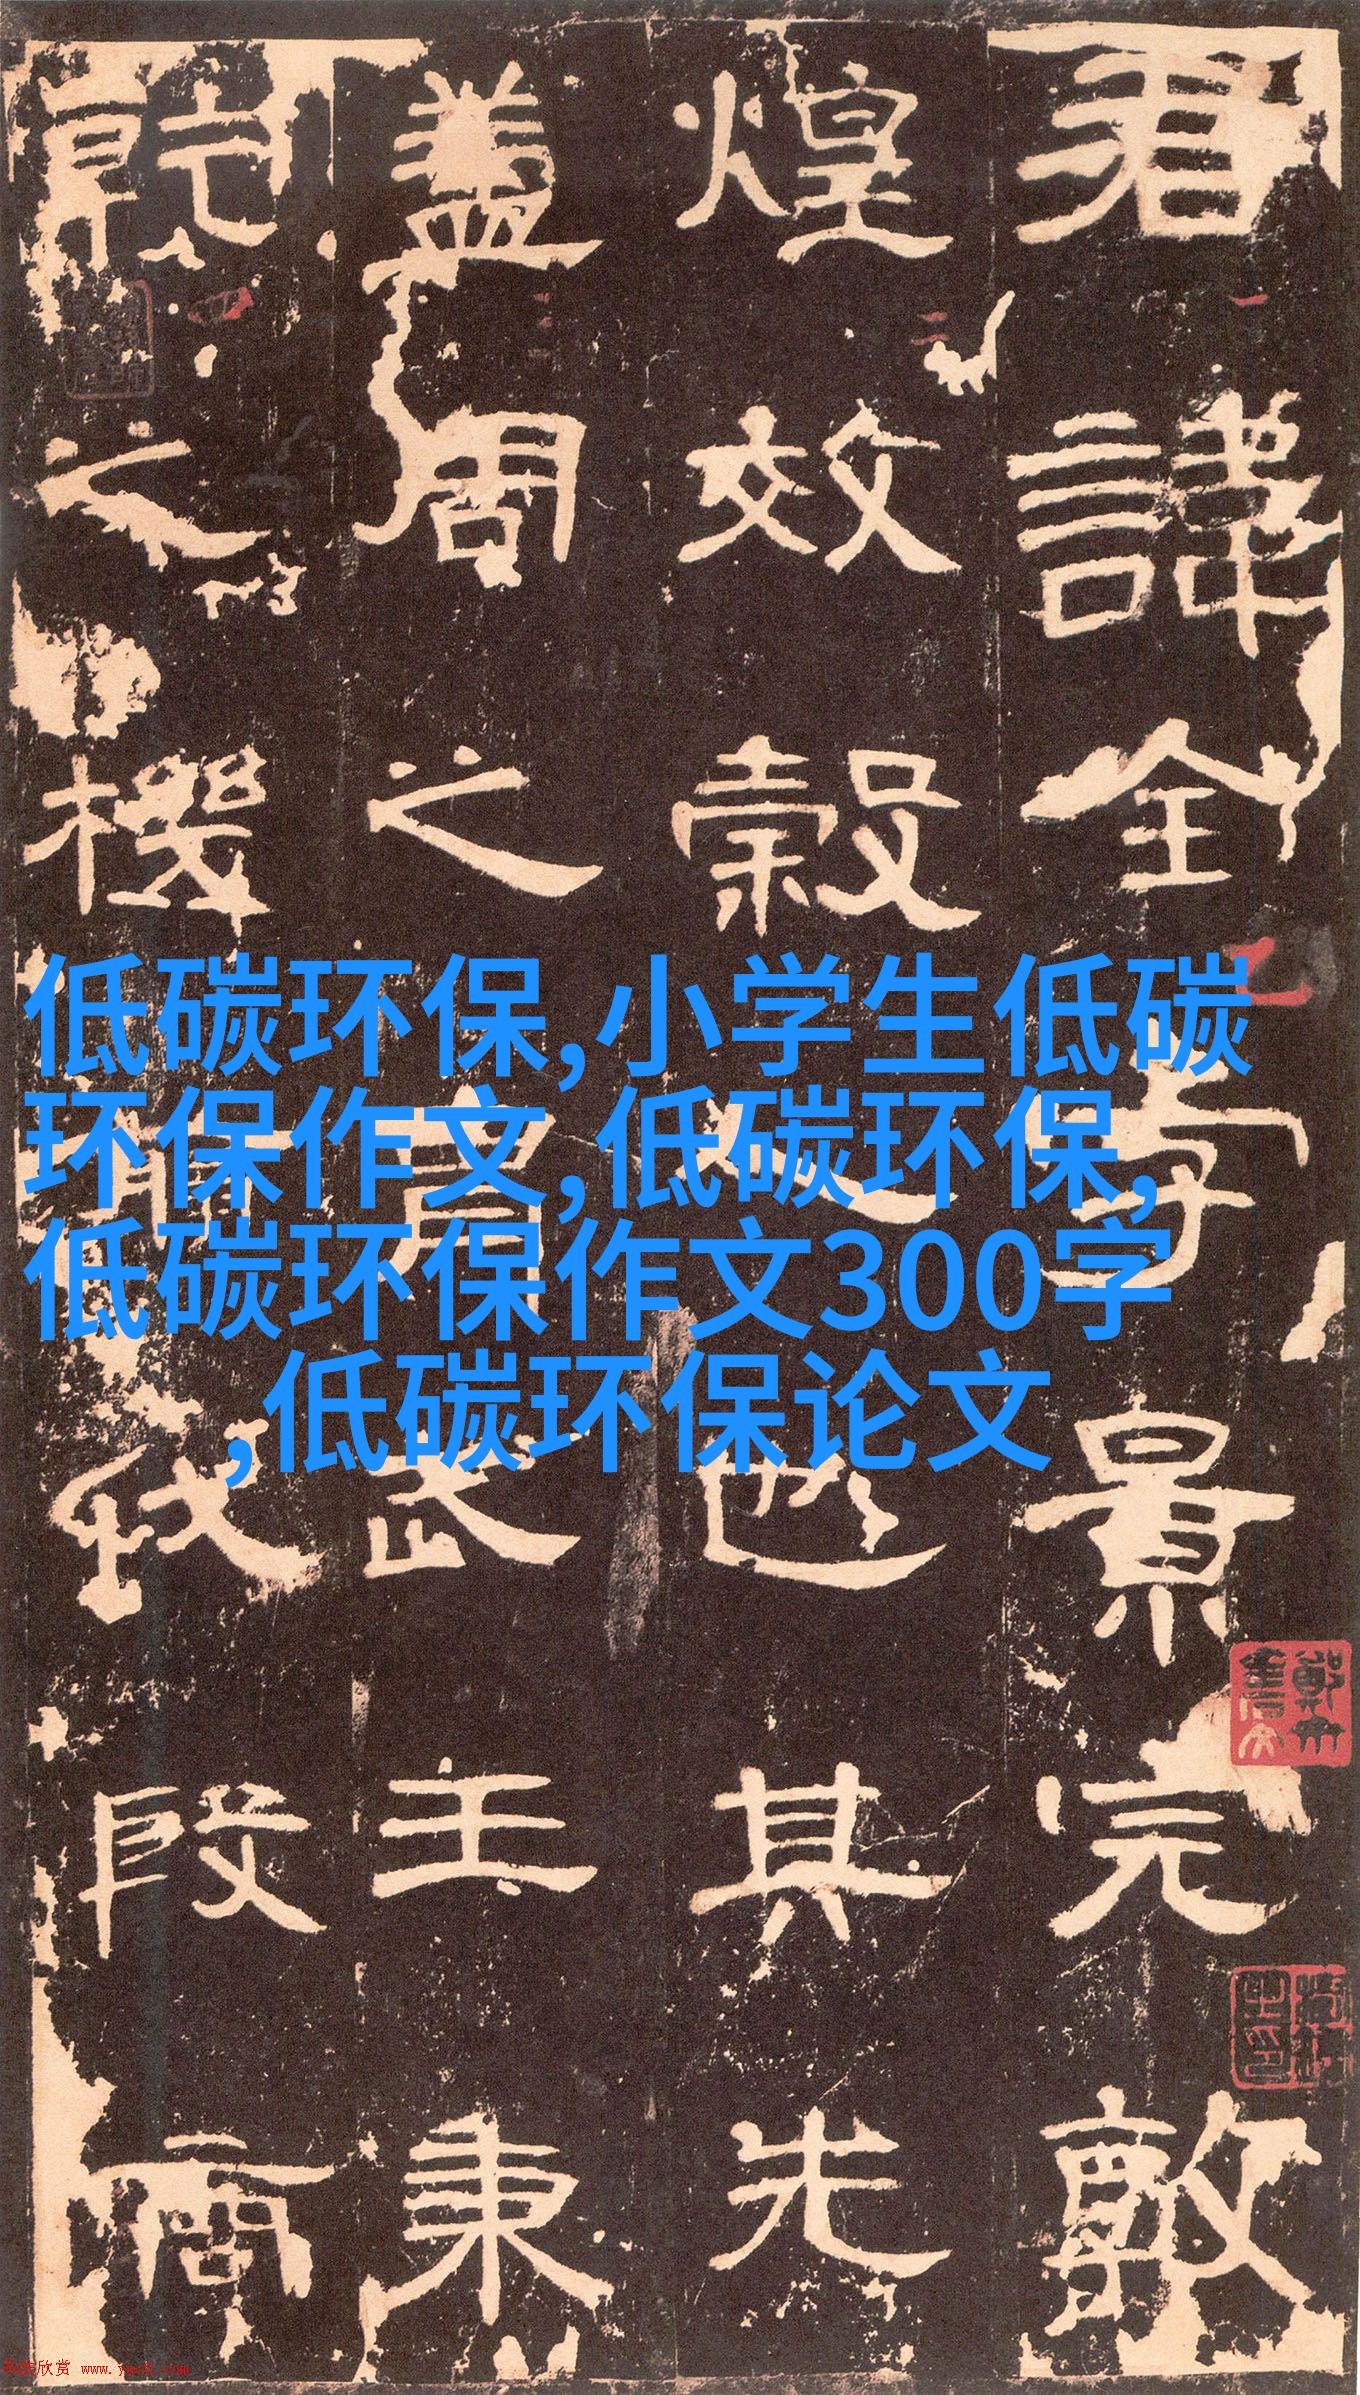 君諱全字景完敦
煌效穀人也其先
蓋周之胄武王秉
乾之機翦伐殷商
低碳环保,小学生低碳
环保作文,低碳环保,
低碳环保作文300字
,低碳环保论文
书法欣赏 www.yac8.com